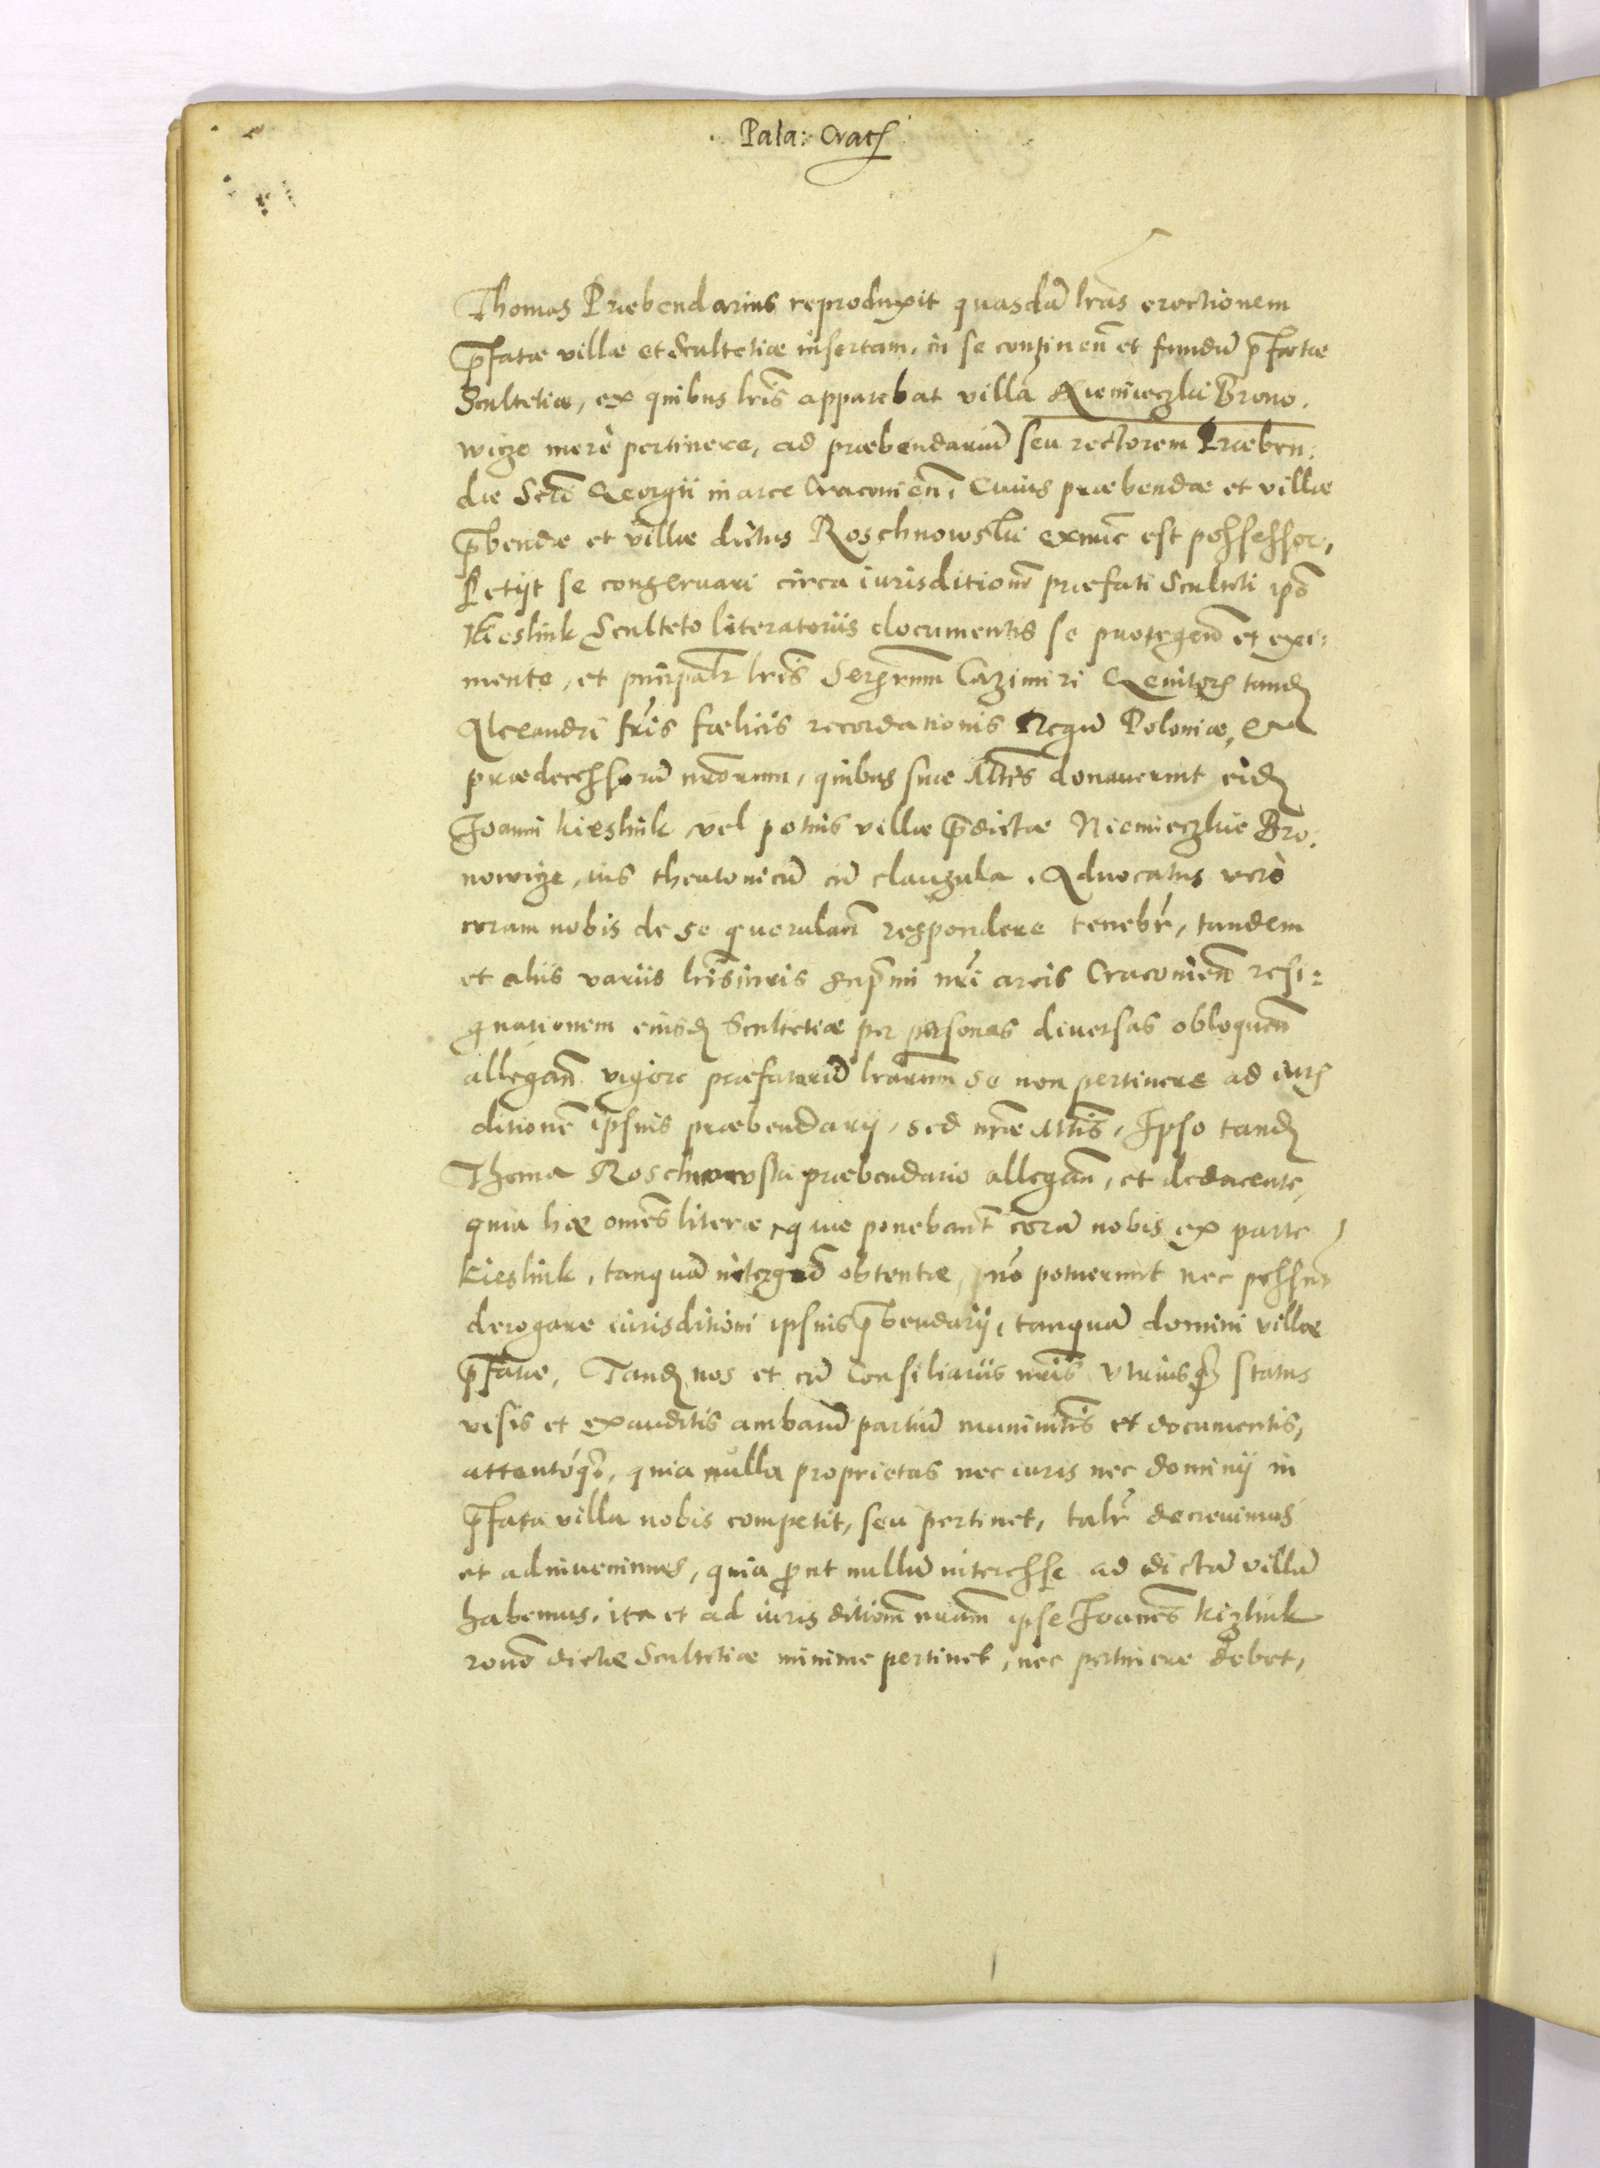 Pala: Crac
Thomas Præbendarius reproduxit quasdā lras erectionem
p̄fatæ villæ et Scultetiæ insertam, in se continen̄ et fundū p̄fatæ
Scultetiæ, ex quibus lris apparebat villa Niemieczkie Brono.
wicze merè pertinere, ad præbendariū seu rectorem Præben:
dæ Scti Georgii in arce Cracovien̄, Cuius præbendæ et villæ
p̄bendæ et villæ dictus Roschnowski exnunc est possessor,
Petijt se conservari circa iurisditionē præfati Sculteti ipo
Kieslink Sculteto literatoriis documentis se protegen̄ et exi:
mente, et principalr lris Ser Cazimiri Genitoris tandē
Alexandri fris fœlicis recordationis Regū Poloniæ,
prædecessorū nrorum, quibus suæ Mttes donaverint eidē
Joanni Kieslink vel potius villæ p̄dictæ Niemieczkie Bro:
nowicze, ius theutonicū cū clausula. Advocatus verò
coram nobis de se querulan̄ respondere tenebr, tandem
et aliis variis lris iuris supmi nri arcis Cracovien̄ resi:
gnationem eiusdē Scultetiæ per personas diversas obloquen̄
allegan̄ vigore præfatarū lrarum se non pertinere ad iuris
ditionē ipsius præbendarij, sed nræ Mttis, Ipso tandē
Thoma Roschnowski præbendario allegan̄, et deducente,
quia hæ omēs literæ quæ ponebant corā nobis ex parte
Kieslink, tanquā obtentæ, potuerint nec possint
derogare iurisditioni ipsius p̄bendarij, tanquā domini villæ
p̄fatæ, Tandē nos et cū Consiliariis nris utriusq3 status
visis et exauditis ambarū partiū munimtis et documentis,
attentóq3, quia nulla proprietas nec iuris nec dominij in
p̄fata villa nobis competit, seu pertinet, talr decrevimus
et adinvenimus, quia prout nullū interesse ad dictā villā
habemus, ita et ad iurisditionē nram ipse Joannes Kizlink
rone dictæ Scultetiæ minime pertinet, nec pertinere debet,